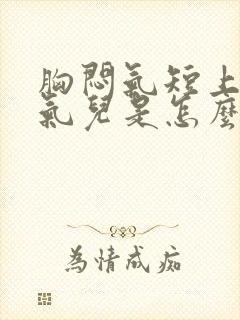 胸悶氣短上
氣兒是怎麼
為情成痴